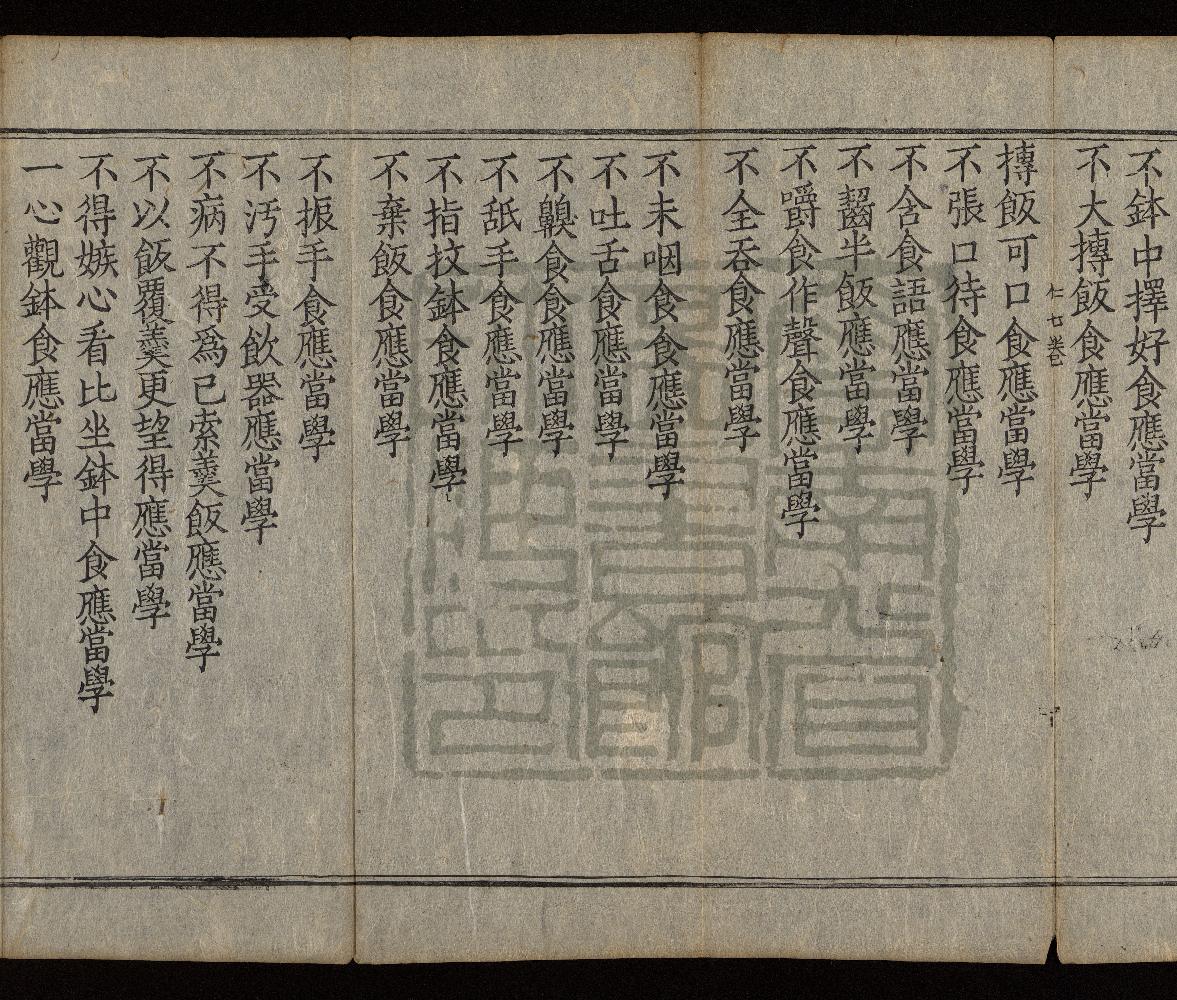 不鉢中擇好食應當學
不大摶飯食應當學
仁七
摶飯可口食應當學
不張口待食應當學
不含食語應當學
不齧半飯應當學
不嚼食作聲食應當學
不全吞食應當學
不未咽食食應當學
不吐舌食應當學
不齅食食應當學
不舐手食應當學
不指抆鉢食應當學
不棄飯食應當學
不振手食應當學
不汚手受飲器應當學
不病不得爲已索羹飯應當學
不以飯覆羹更望得應當學
不得嫉心看比坐鉢中食應當學
一心觀鉢食應當學